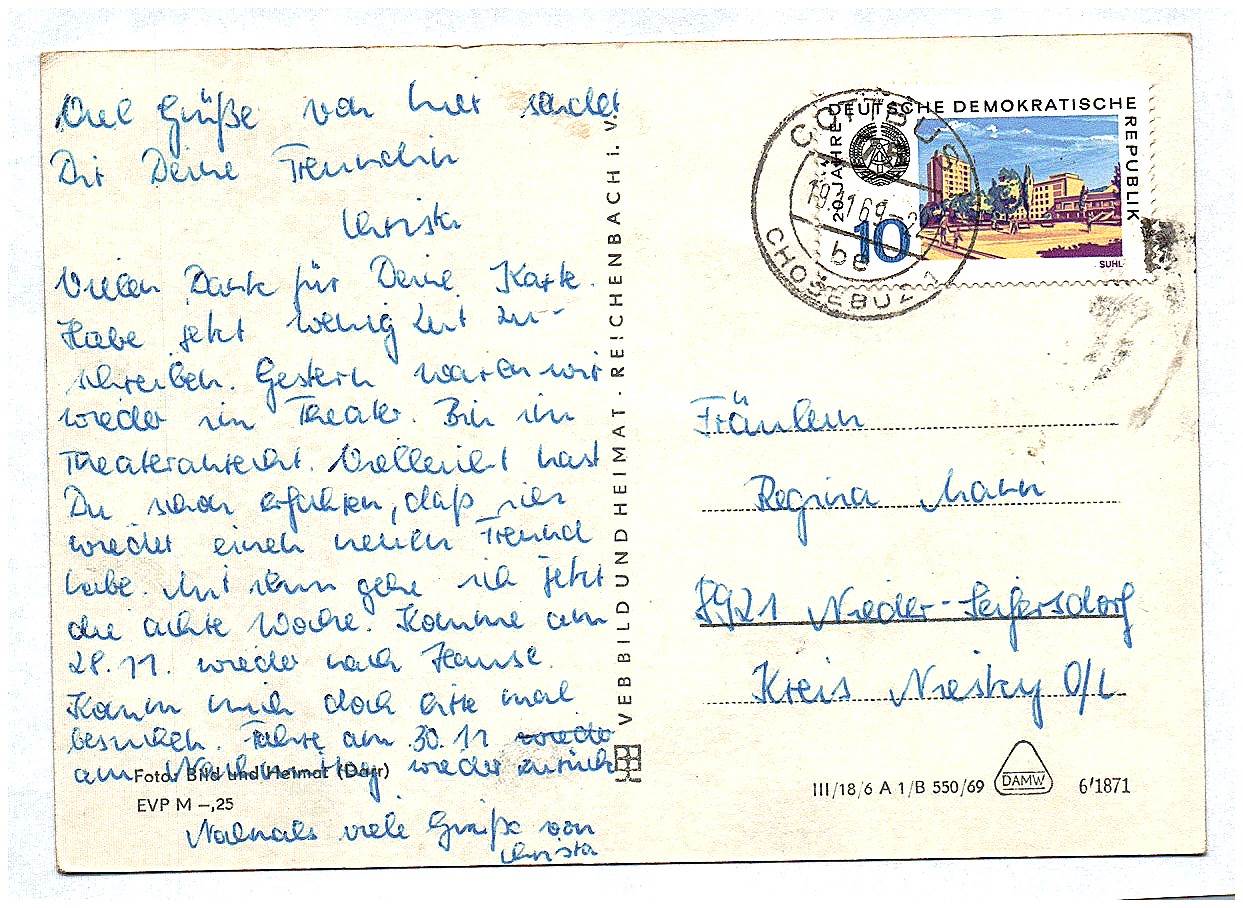 Viel Grüße von hier sendet
Dir Deine Freundin
Christa
Vielen Dank für Deine Karte.
Habe jetzt wenig Zeit zu-
schreiben. Gestern waren wir
wieder im Theater. Bin im
Theateranrecht. Vielleicht hast
Du schon erfahren, daß ich
wieder einen neuen Freund
habe. Mit ihm gehe ich jetzt
die achte Woche. Komme am
28.11. wieder nach Hause.
Kannn mich doch bitte mal
besuchen. Fahre am 30.11 wieder
am Nachmittag wieder zurück
Foto: Bild und Heimat (Darr)
EVP M –,25
Nochmals viele Grüße von
Christa
VEB BILD UND HEIMAT · REICHENBACH i. V.
DEUTSCHE DEMOKRATISCHE
REPUBLIK
20 JAHRE
10
SUHL
COTTBUS
19.11.69
be
CHOŚEBUZ 1
Fräulein
Regina Mann
8921 Nieder-Seifersdorf
Kreis Niesky O/L
III/18/6 A 1/B 550/69
DAMW
6/1871